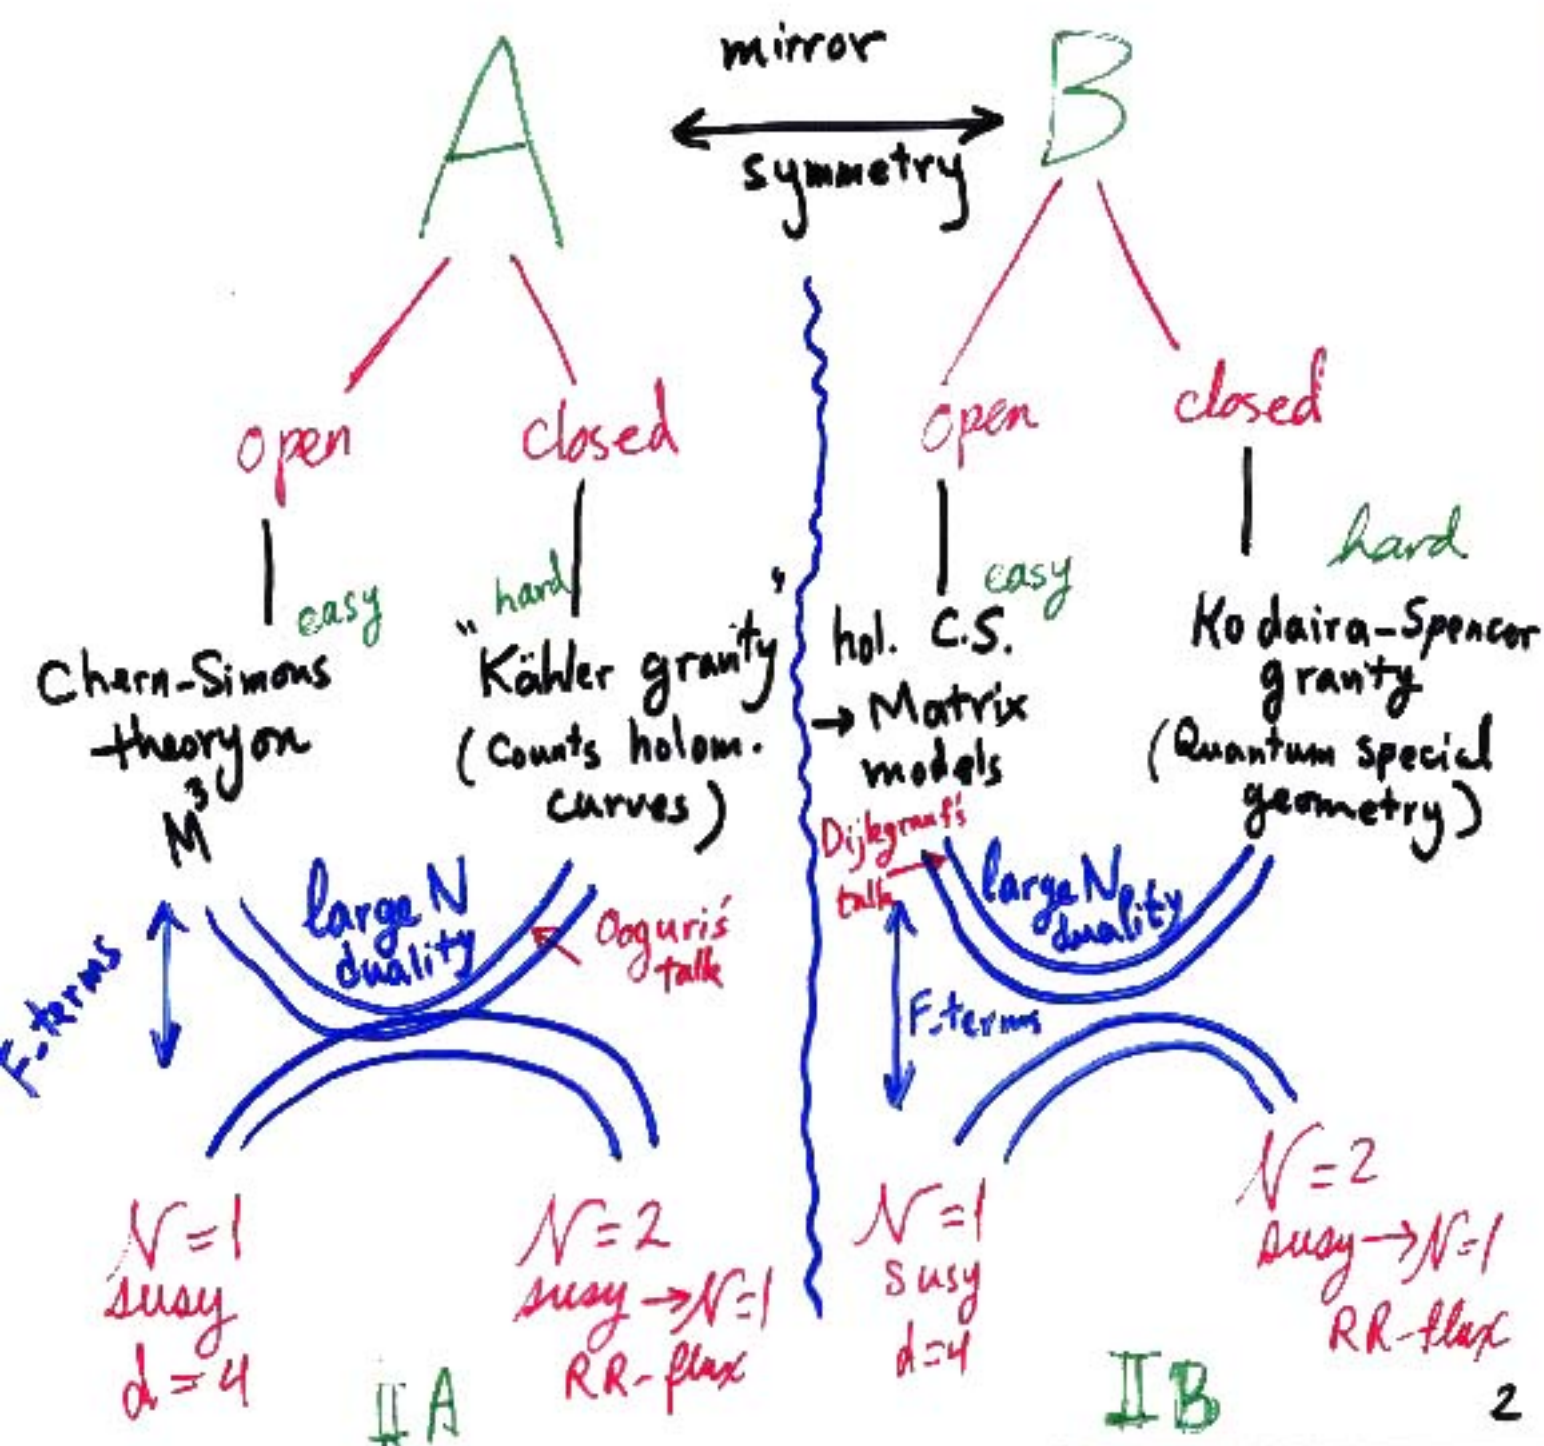 A
mirror
symmetry
B
open
closed
easy
Chern-Simons
theory on
M³
"hard
"Kähler gravity"
(Counts holom.
curves)
large N
duality
Ooguri's
talk
F-terms
N=1
susy
d=4
N=2
susy→N=1
RR-flux
IIA
open
closed
easy
hol. C.S.
→ Matrix
models
Dijkgraaf's
talk
hard
Kodaira-Spencer
gravity
(Quantum special
geometry)
large N
duality
F-terms
N=1
susy
d=4
N=2
susy→N=1
RR-flux
IIB
2